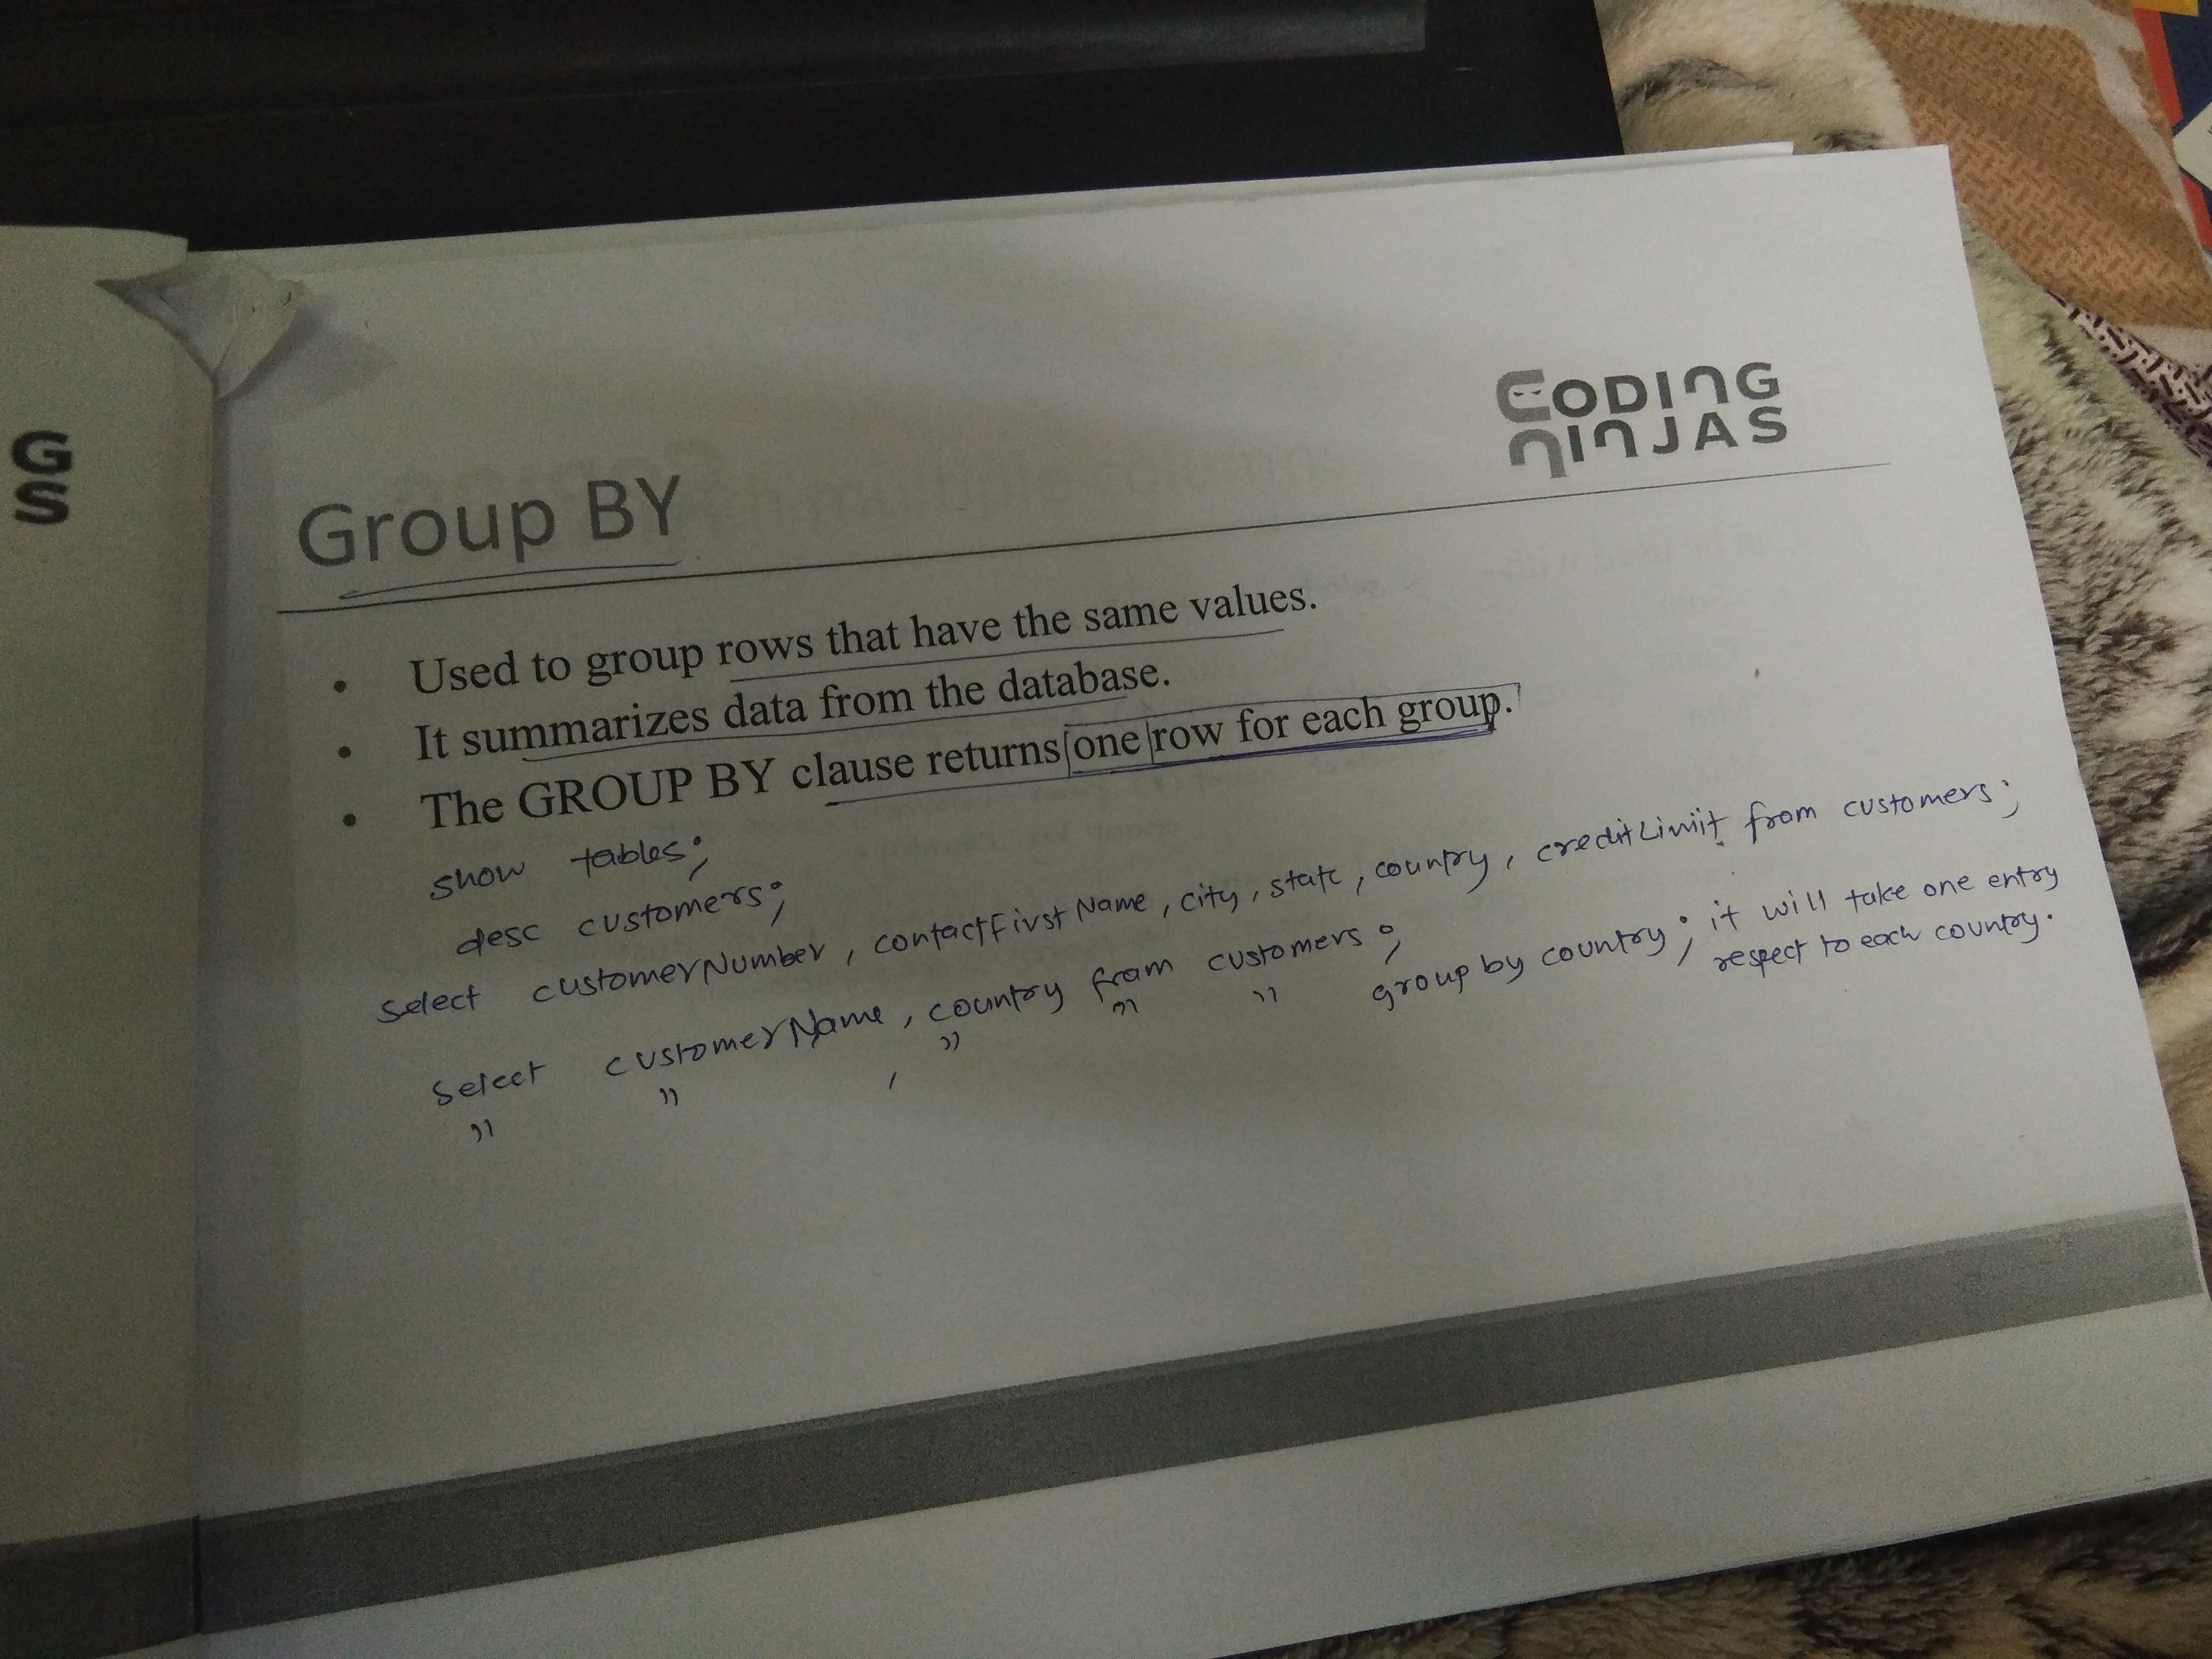 G
S
CODING
NINJAS
Group BY
• Used to group rows that have the same values.
• It summarizes data from the database.
• The GROUP BY clause returns one row for each group.
show tables;
desc customers;
select customerNumber, contactFirstName, city, state, country, creditLimit from customers;
select customerName, country from customers;
" " , " " " group by country; it will take one entry
respect to each country.